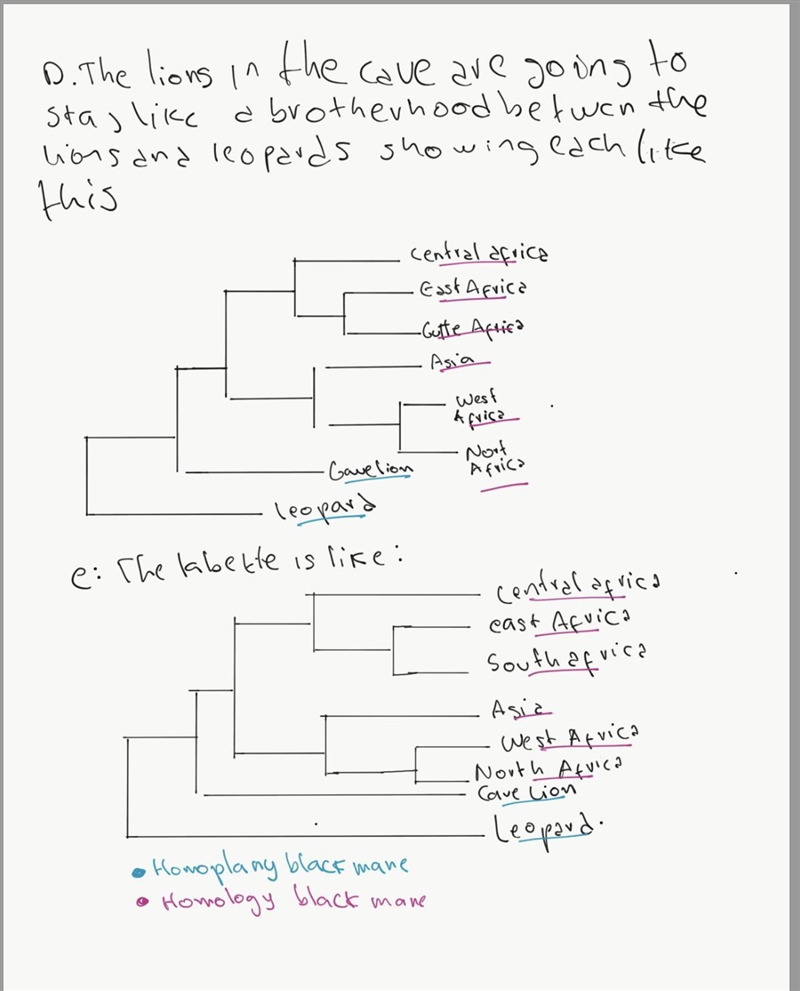 D. The lions in the cave are going to
stay like a brotherhood betwen the
lions and leopards showing each like
this
Central africa
East Africa
Africa
Asia
West
Africa
Nort
Africa
Cave lion
leopard
e: The labelte is like:
Central africa
east Africa
South africa
Asia
West Africa
North Africa
Cave Lion
Leopard.
Homoplany black mane
Homology black mane